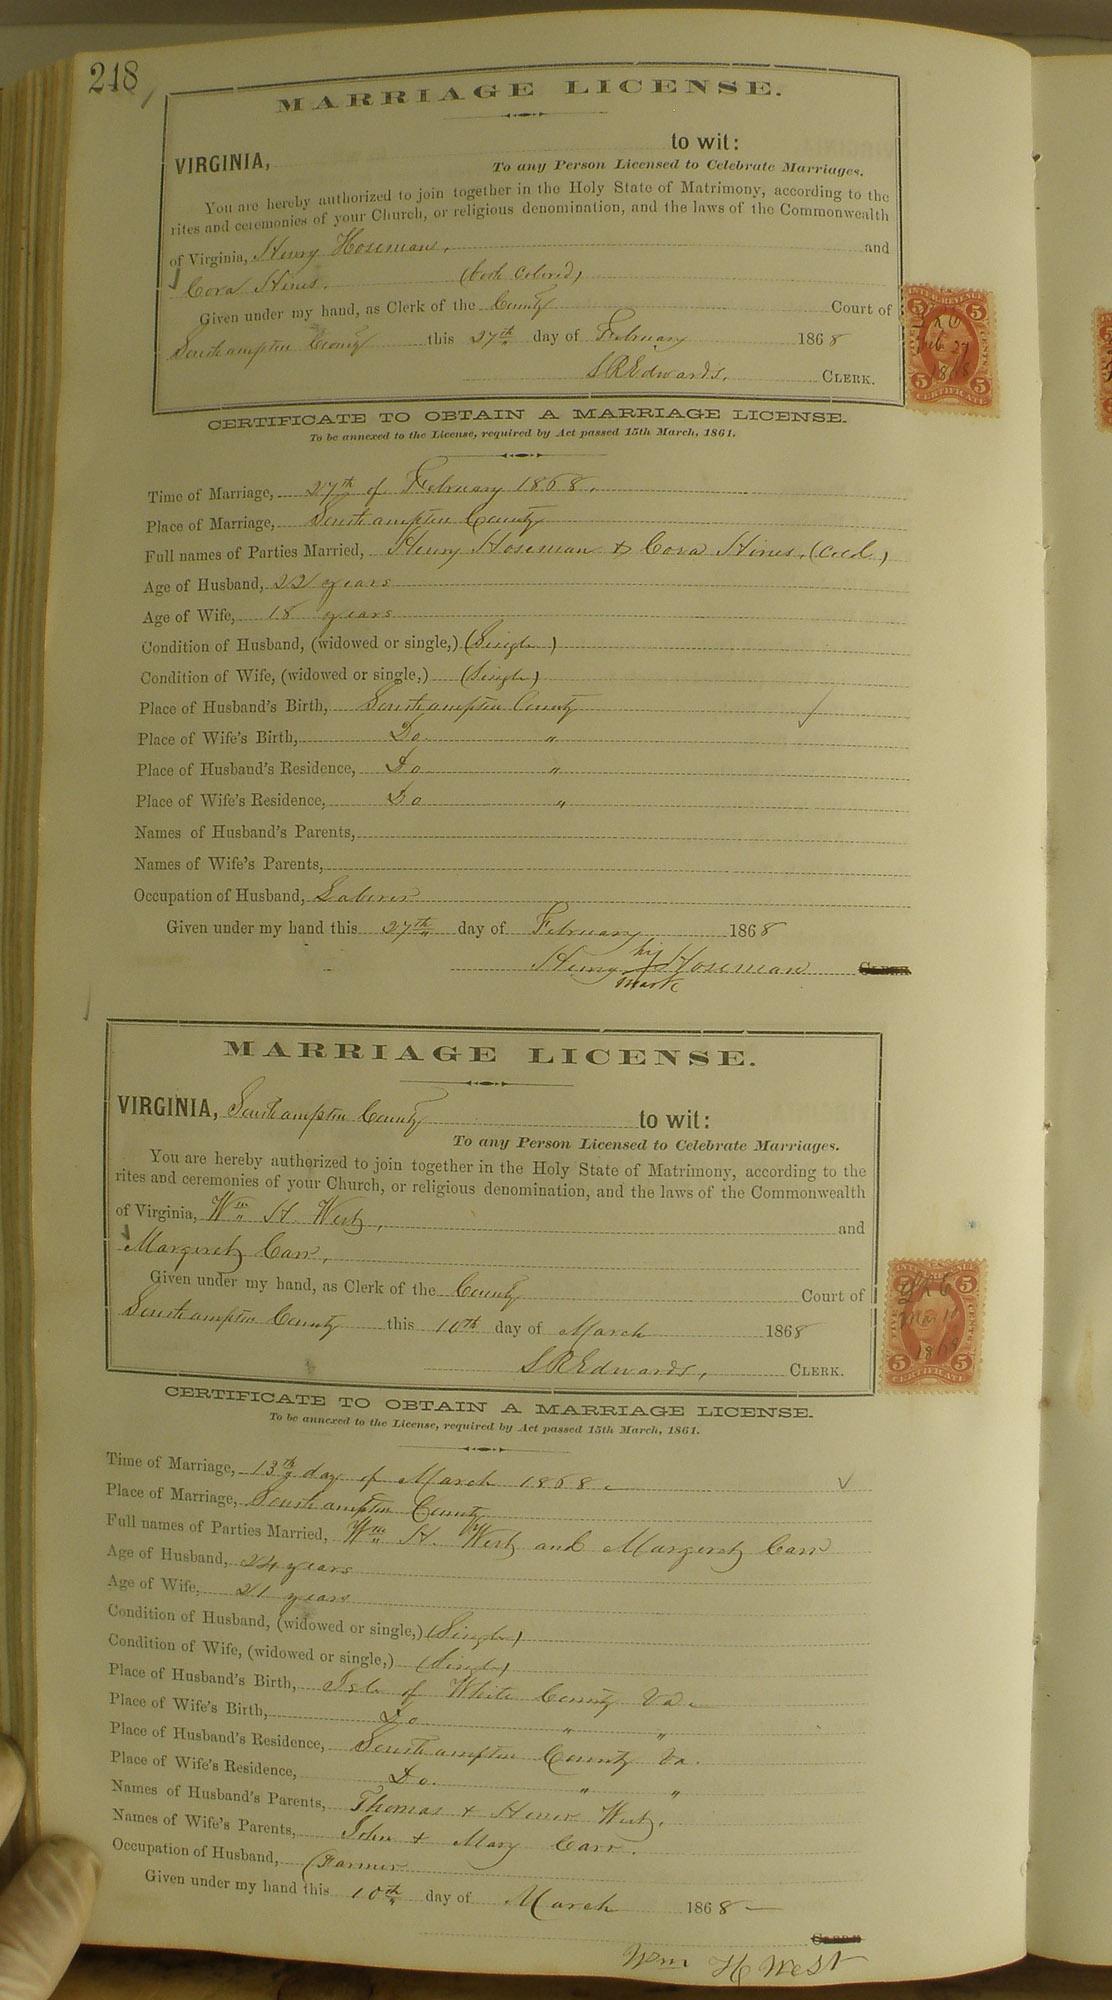 218
MARRIAGE LICENSE.
VIRGINIA, to wit:
To any Person Licensed to Celebrate Marriages.
You are hereby authorized to join together in the Holy State of Matrimony, according to the
rites and ceremonies of your Church, or religious denomination, and the laws of the Commonwealth
of Virginia, Henry Hoseman, and
Cora Hines. (both Colored)
Given under my hand, as Clerk of the County Court of
Southampton County this 27th day of February 1868
S R Edwards, CLERK.
INTER. REVENUE
5 5
Feb 27
1868
FIVE CENTS
5 5
CERTIFICATE
CERTIFICATE TO OBTAIN A MARRIAGE LICENSE.
To be annexed to the License, required by Act passed 15th March, 1861.
Time of Marriage, 27th of February 1868.
Place of Marriage, Southampton County
Full names of Parties Married, Henry Hoseman & Cora Hines. (Cold)
Age of Husband, 22 years
Age of Wife, 18 years
Condition of Husband, (widowed or single,) (Single)
Condition of Wife, (widowed or single,) (Single)
Place of Husband's Birth, Southampton County
Place of Wife's Birth, Do "
Place of Husband's Residence, Do "
Place of Wife's Residence, Do "
Names of Husband's Parents,
Names of Wife's Parents,
Occupation of Husband, Laborer
Given under my hand this 27th day of February 1868
his
Henry Hoseman CLERK
mark
MARRIAGE LICENSE.
VIRGINIA, Southampton County to wit:
To any Person Licensed to Celebrate Marriages.
You are hereby authorized to join together in the Holy State of Matrimony, according to the
rites and ceremonies of your Church, or religious denomination, and the laws of the Commonwealth
of Virginia, Wm H West, and
Margaret Carr,
Given under my hand, as Clerk of the County Court of
Southampton County this 10th day of March 1868
S R Edwards, CLERK.
INTER. REVENUE
5 5
Mar 10
1868
FIVE CENTS
5 5
CERTIFICATE
CERTIFICATE TO OBTAIN A MARRIAGE LICENSE.
To be annexed to the License, required by Act passed 15th March, 1861.
Time of Marriage, 13th day of March 1868.
Place of Marriage, Southampton County
Full names of Parties Married, Wm H. West and Margaret Carr
Age of Husband, 24 years
Age of Wife, 21 years
Condition of Husband, (widowed or single,) (Single)
Condition of Wife, (widowed or single,) (Single)
Place of Husband's Birth, Isle of White County Va.
Place of Wife's Birth, Do " "
Place of Husband's Residence, Southampton County Va.
Place of Wife's Residence, Do. " "
Names of Husband's Parents, Thomas & West.
Names of Wife's Parents, John & Mary Carr.
Occupation of Husband, Farmer
Given under my hand this 10th day of March 1868
CLERK
Wm H West